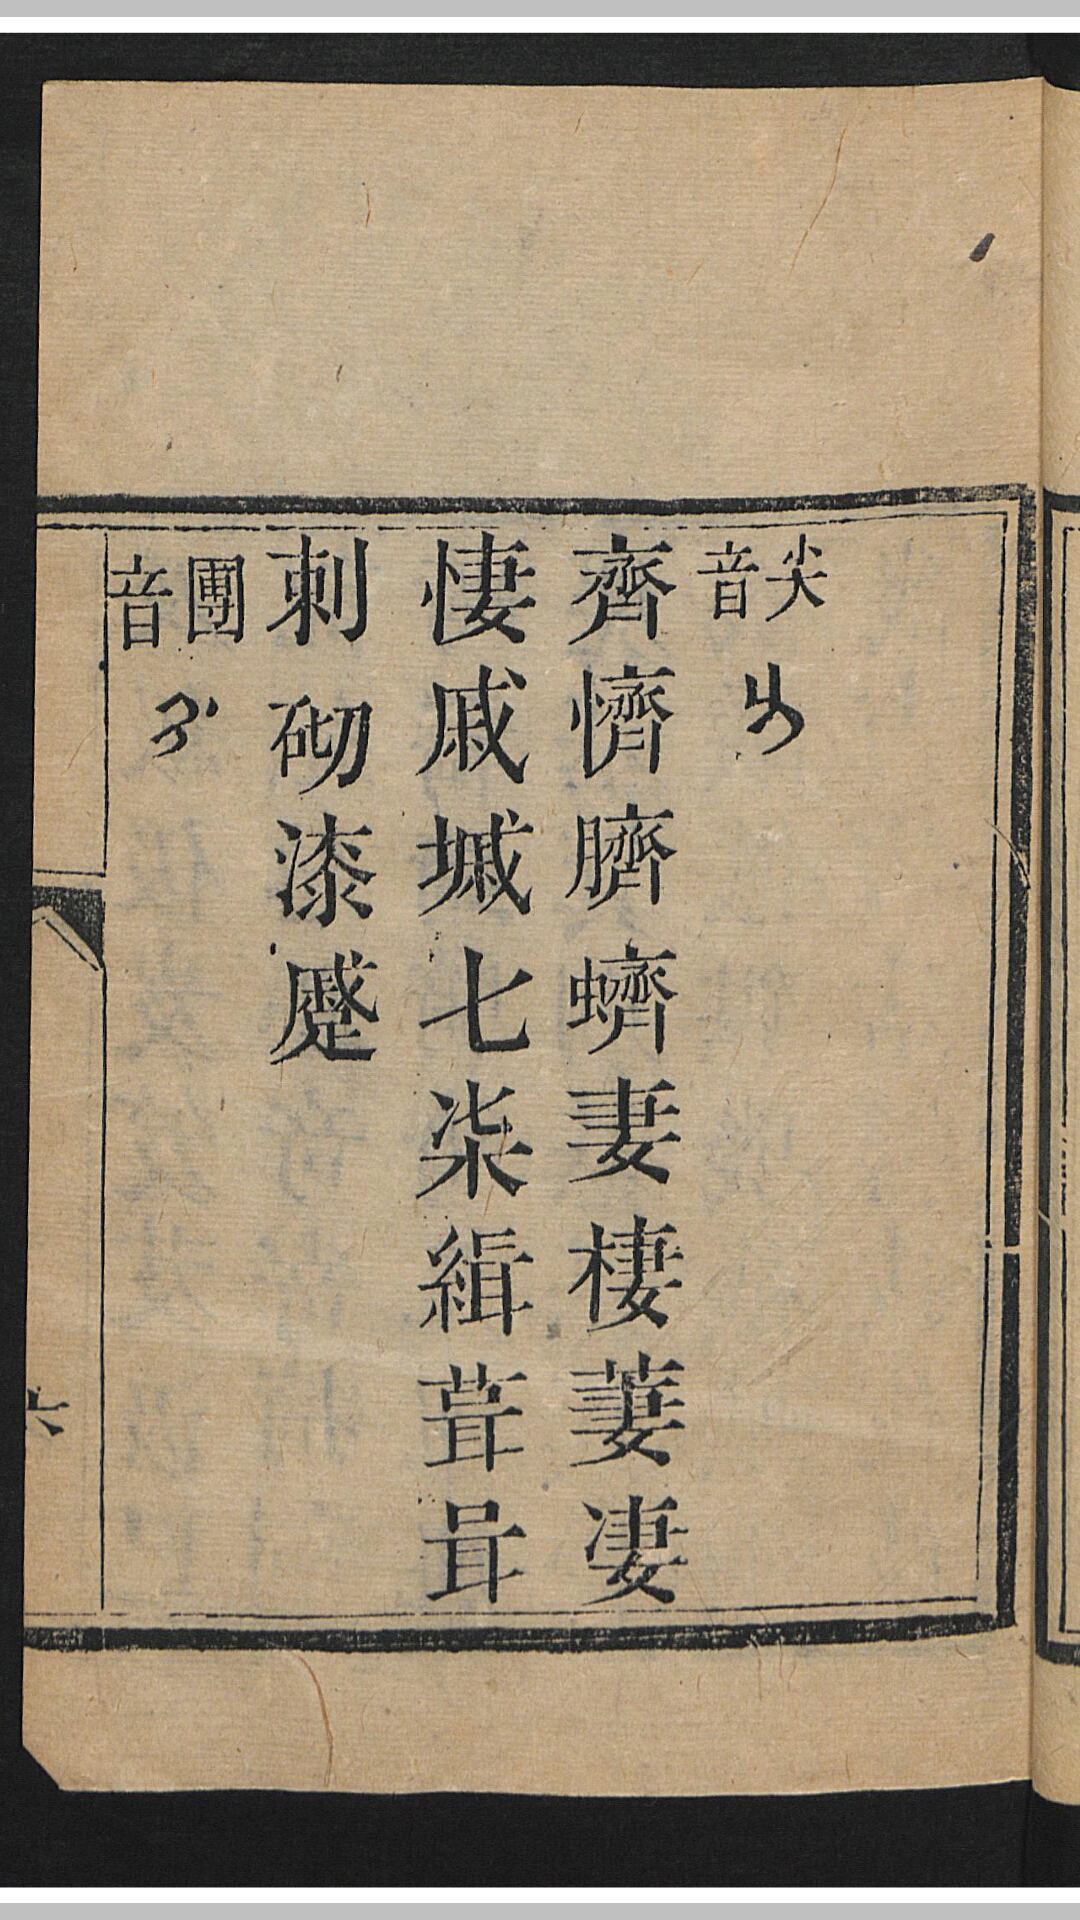 尖音
齊懠臍蠐妻棲萋凄
悽戚墄七柒緝葺咠
刺砌漆蹙
團音
六